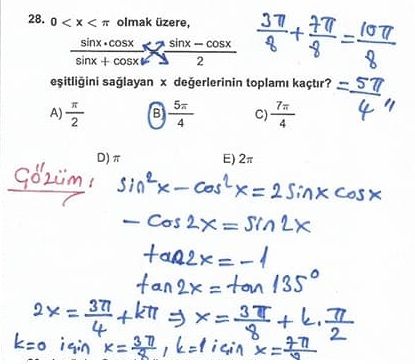 28. 0 < x < π olmak üzere,
sinx•cosx / sinx + cosx   sinx – cosx / 2
3π/8 + 7π/8 = 10π/8
eşitliğini sağlayan x değerlerinin toplamı kaçtır?
= 5π/4 "
A) π/2 B) 5π/4 C) 7π/4
D) π E) 2π
Çözüm: sin²x – cos²x = 2 sinx cosx
– cos2x = sin2x
tan2x = –1
tan2x = tan 135°
2x = 3π/4 + kπ ⇒ x = 3π/8 + k. π/2
k=0 için x = 3π/8, k=1 için x = 7π/8